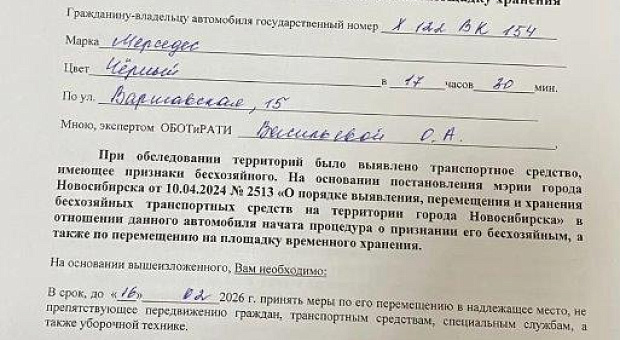 площадку хранения
Гражданину-владельцу автомобиля государственный номер Х 122 ВК 154
Марка Мерседес
Цвет Чёрный в 17 часов 30 мин.
По ул. Варшавская, 15
Мною, экспертом ОБОТиРАТИ Васильевой О.А.
При обследовании территорий было выявлено транспортное средство,
имеющее признаки бесхозяйного. На основании постановления мэрии города
Новосибирска от 10.04.2024 № 2513 «О порядке выявления, перемещения и хранения
бесхозяйных транспортных средств на территории города Новосибирска» в
отношении данного автомобиля начата процедура о признании его бесхозяйным, а
также по перемещению на площадку временного хранения.
На основании вышеизложенного, Вам необходимо:
В срок, до «16» 02 2026 г. принять меры по его перемещению в надлежащее место, не
препятствующее передвижению граждан, транспортным средствам, специальным службам, а
также уборочной технике.